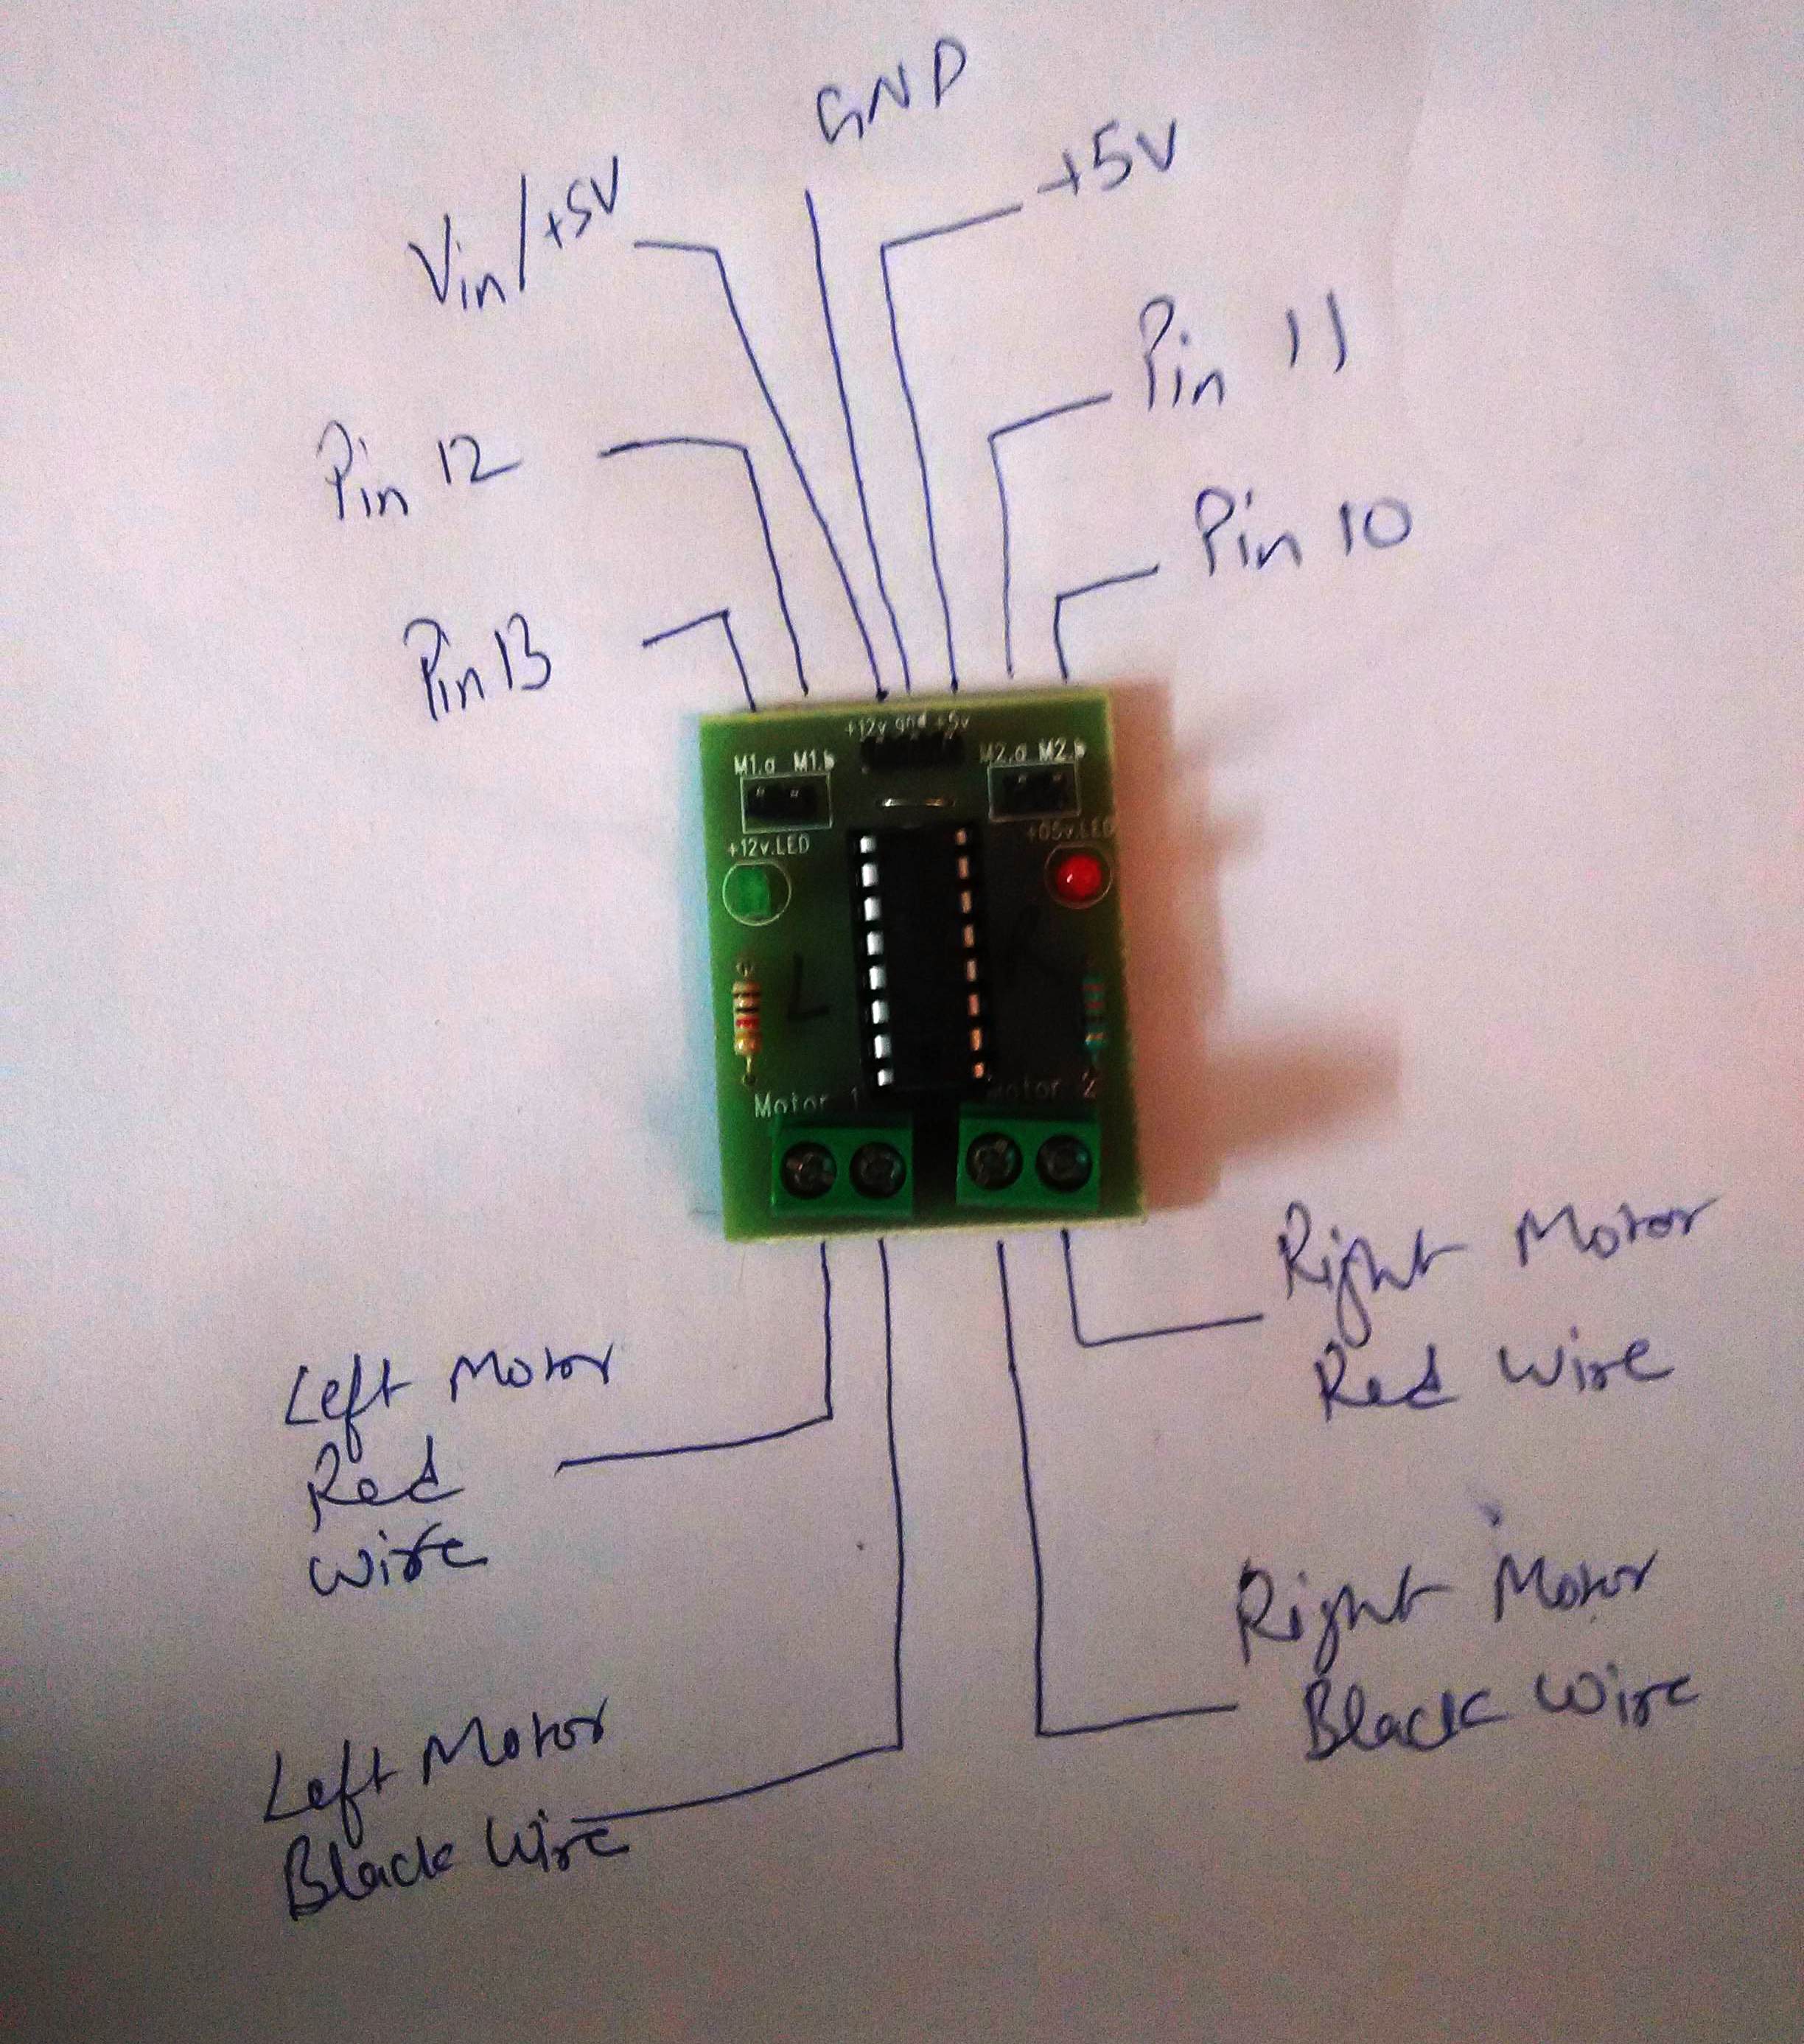 GND
+5V
Vin/+5V
Pin 11
Pin 12
Pin 10
Pin 13
+12v gnd +5v
M1.a M1.b
M2.a M2.b
+12v.LED
+05v.LED
L
R
Motor 1
Motor 2
Right Motor
Red Wire
Left Motor
Red
Wire
Right Motor
Black Wire
Left Motor
Black Wire